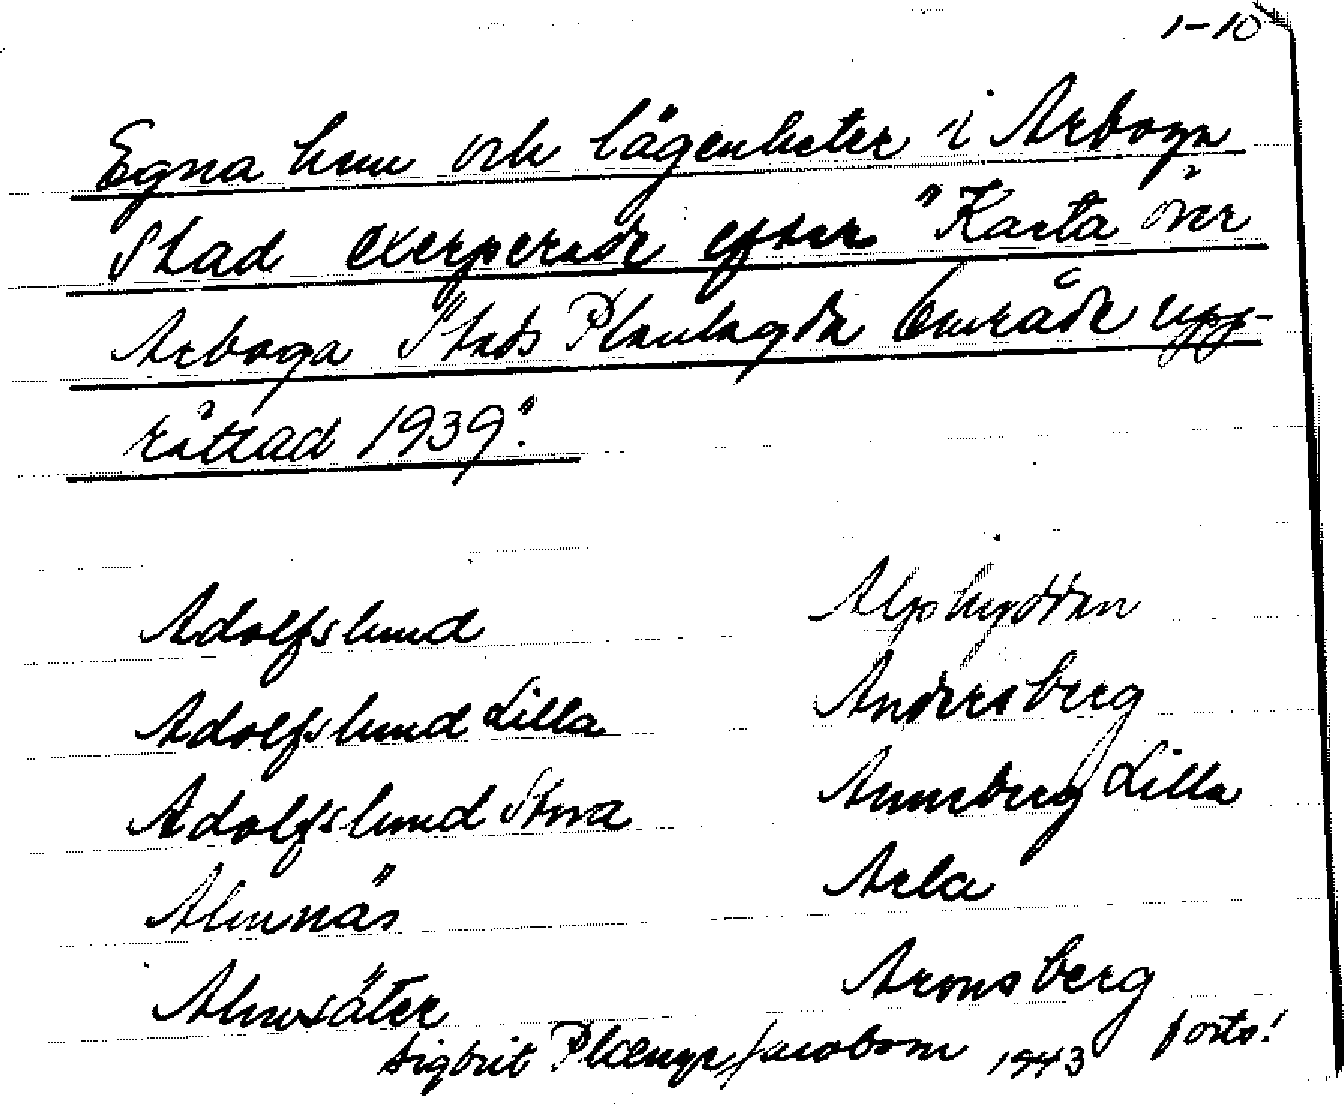 1-10
Egna hem och lägenheter i Arboga
Stad excerperade efter "Karta över
Arboga Stads Planlagda område upp-
rättad 1939".
Adolfslund
Adolfslund Lilla
Adolfslund Stora
Almnäs
Almsäter
Alphyddan
Andersberg
Anneberg Lilla
Arla
Aronsberg
Sigbrit Jacobson 1943 forts!